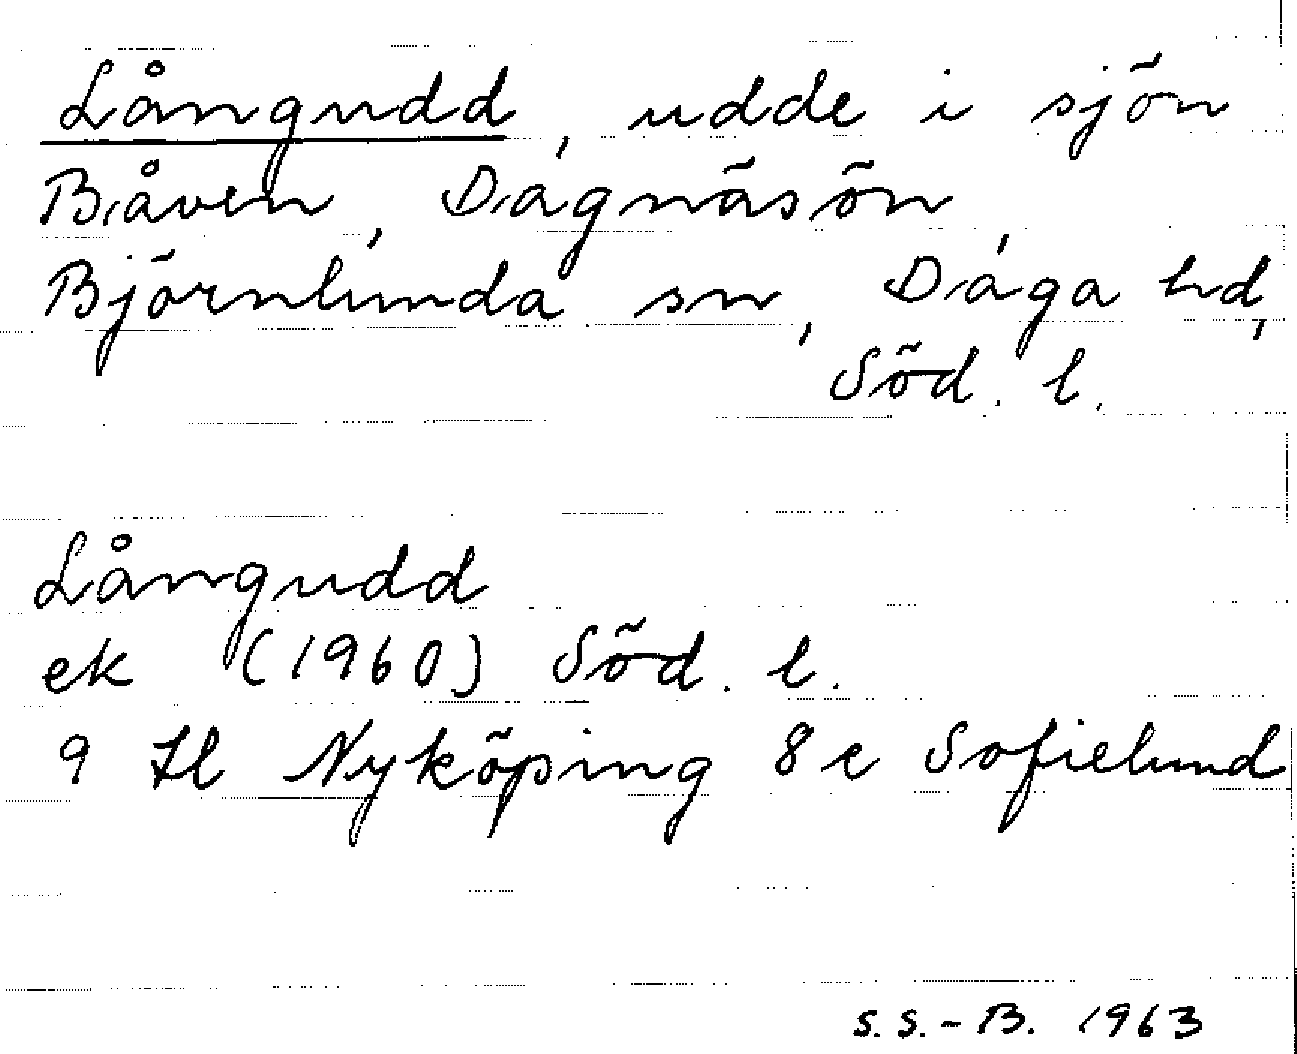 Långudd, udde i sjön
Båven, Dagnäsön,
Björnlunda sn, Daga hd,
Söd. l.
Långudd
ek (1960) Söd. l.
9 H Nyköping 8 e Sofielund
S.S.-B. 1963